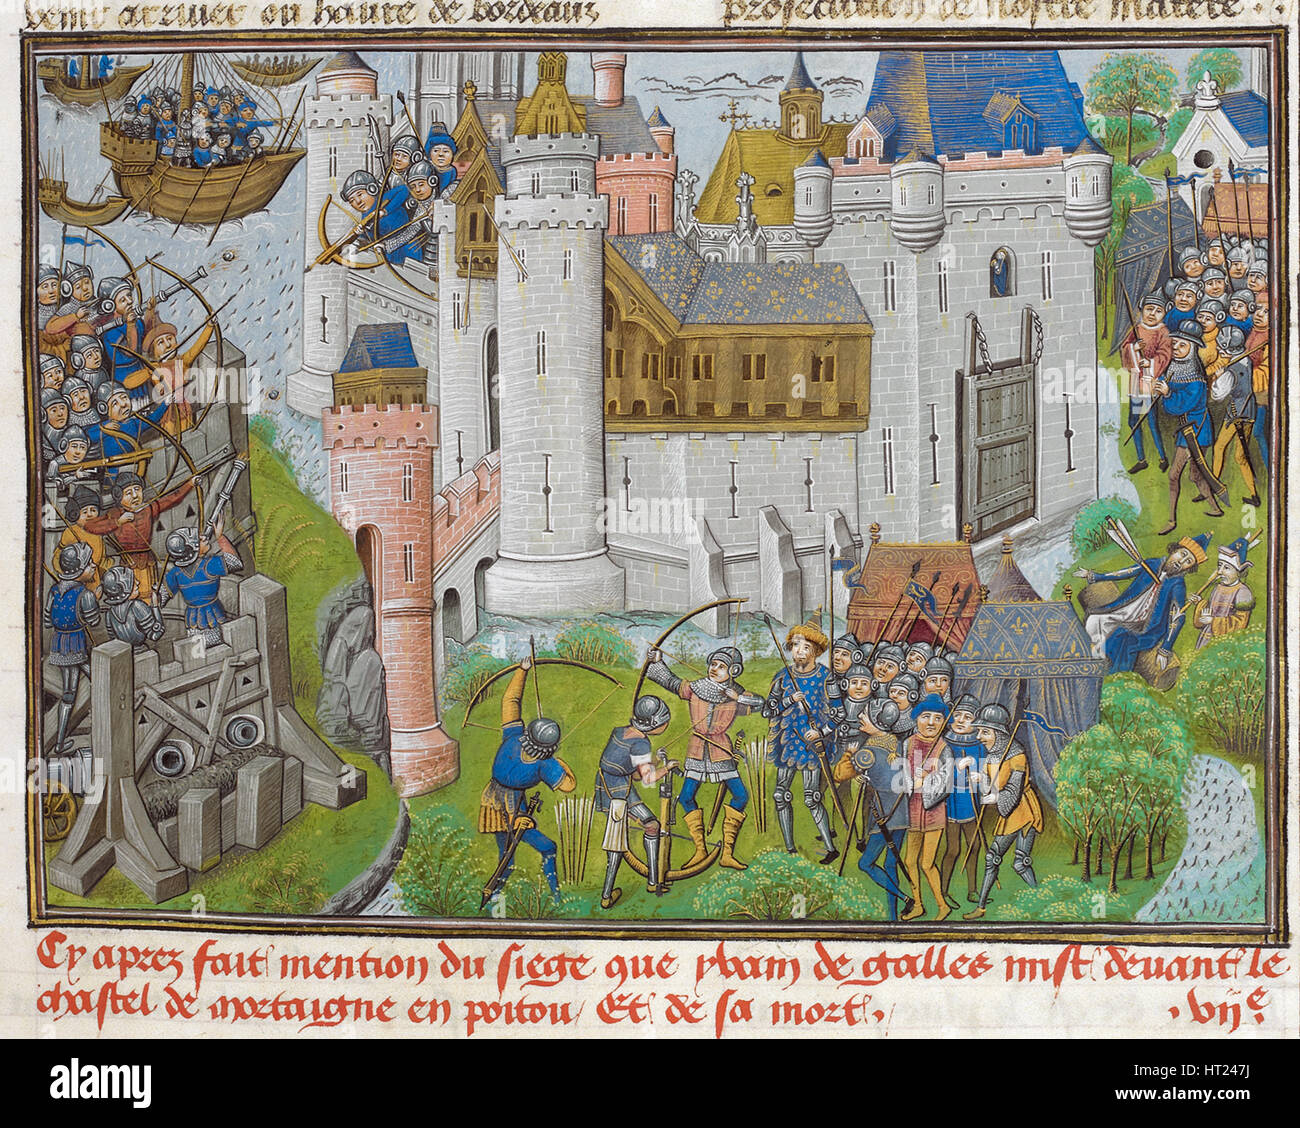 venir arriver ou havre de bordeaux prosecution de nostre matere.
Cy aprez fait mention du siege que yvain de galles mist devant le
chastel de mortaigne en poitou / Et de sa mort. . vije.
alamy stock photo
HT247J
www.alamy.com